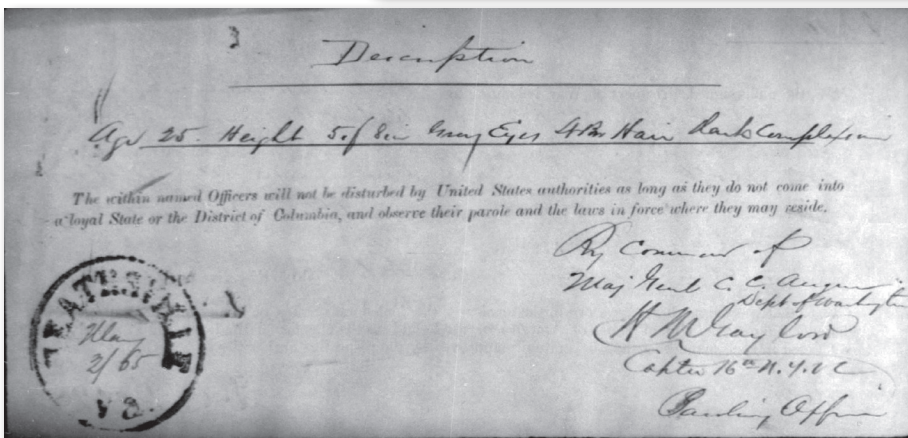 Description
Age 25. Height 5.f 8in Gray Eyes Hair Dark Complexion
The within named Officers will not be disturbed by United States authorities as long as they do not come into
a loyal State or the District of Columbia, and observe their parole and the laws in force where they may reside.
By Command of
Maj Genl C. C. Augur
Dept of Washington
H M Gaylord
Capt 16th N.Y.V C
Paroling Officer
VA.
May
2/65